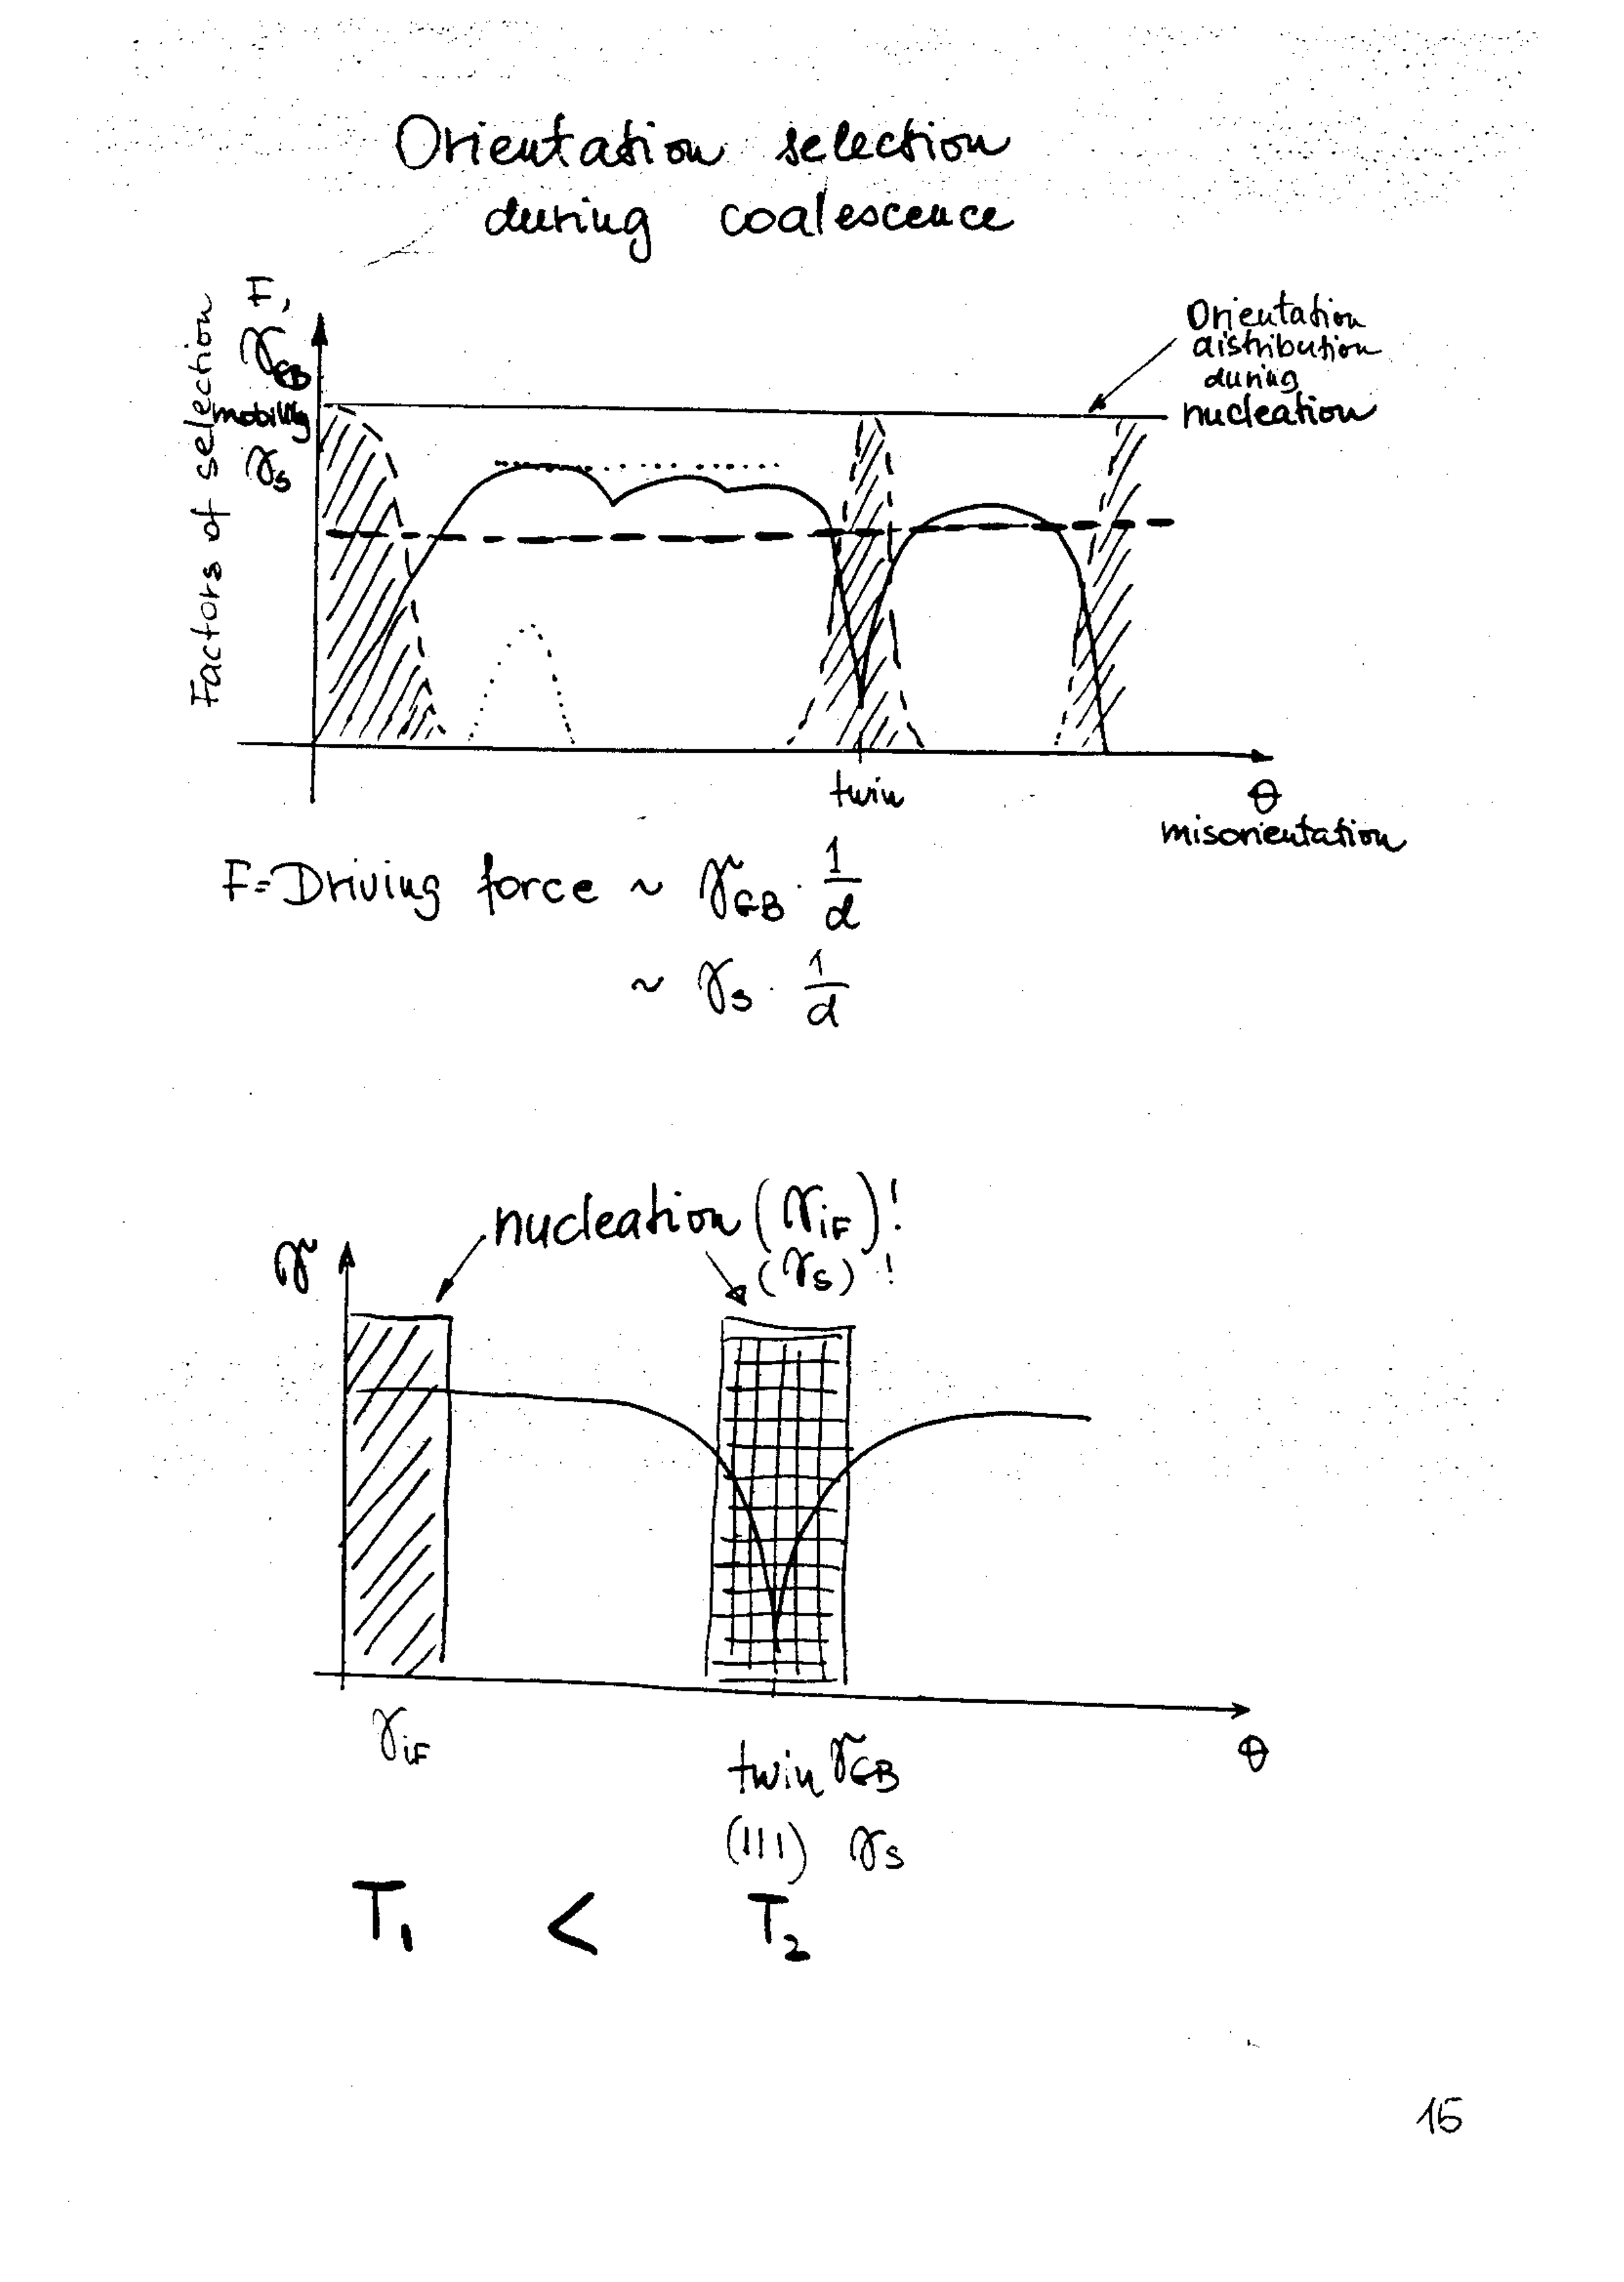 Orientation selection
during coalescence
Factors of selection
F,
γGB
mobility
γs
Orientation
distribution
during
nucleation
twin
θ
misorientation
F=Driving force ~ γGB · 1/d
~ γs · 1/d
nucleation (γiF)!
(γs)!
γ
γiF
θ
twin γGB
(111) γs
T1 < T2
15